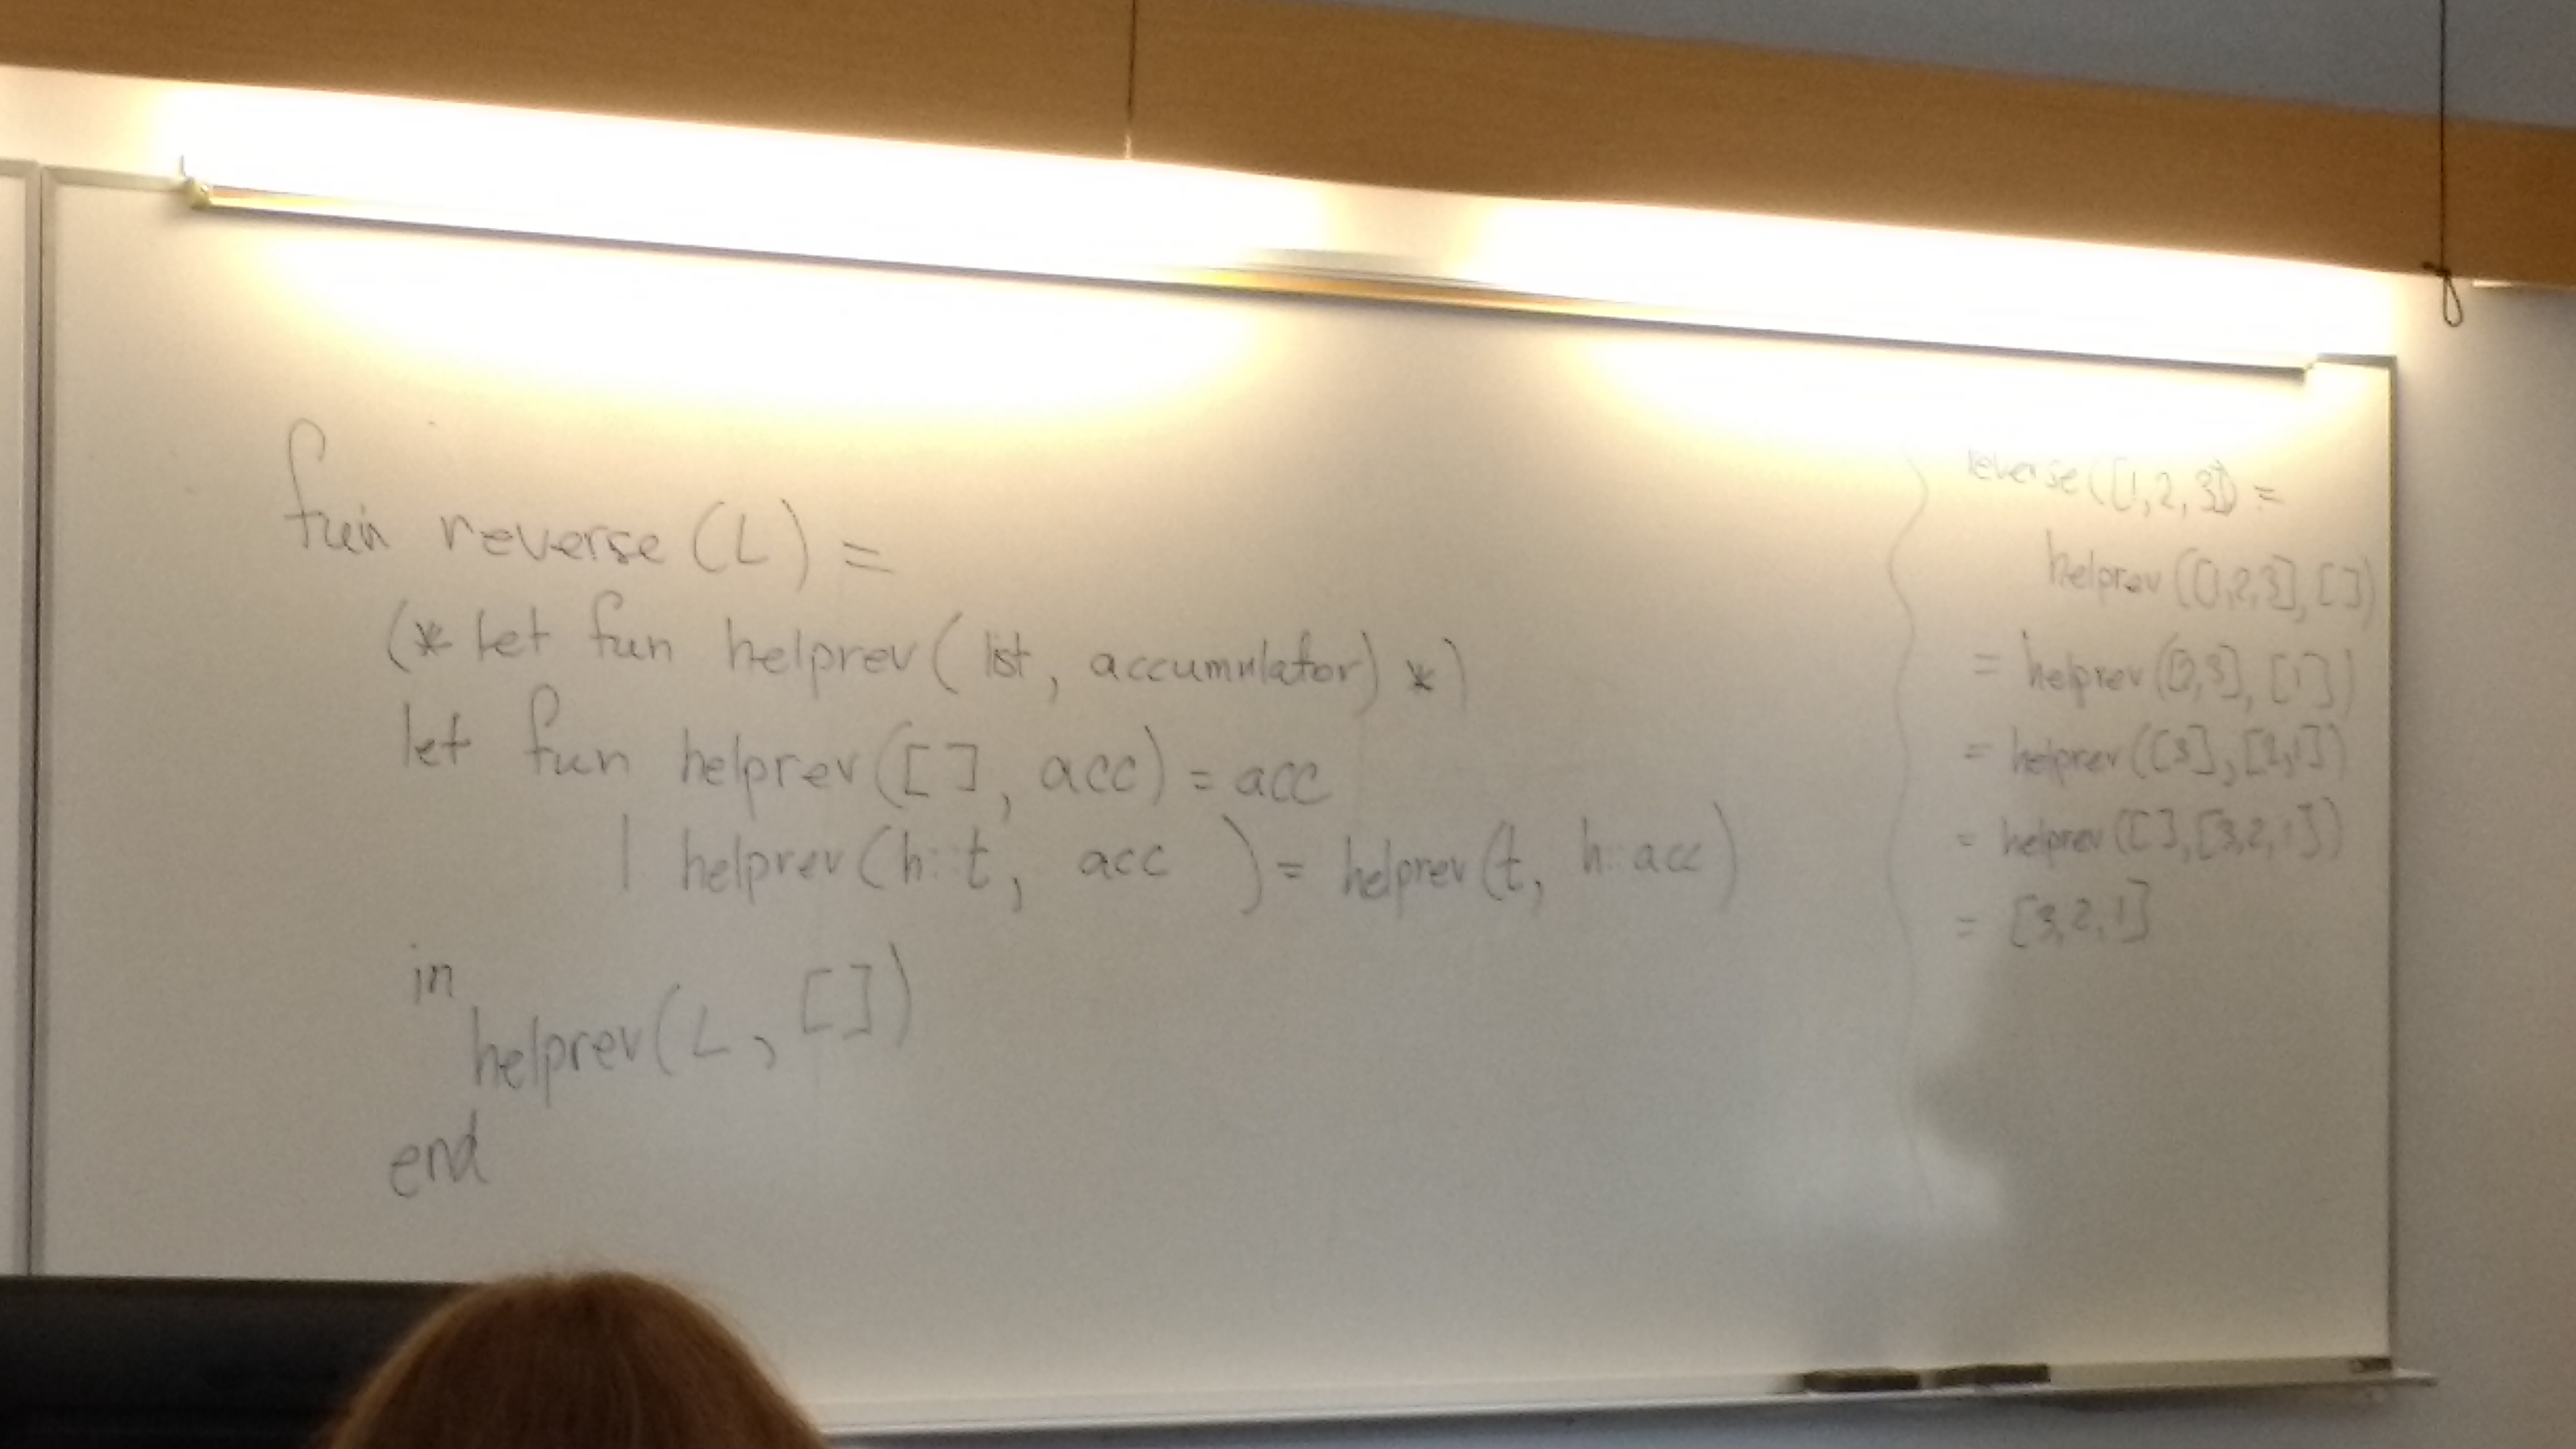 fun reverse (L) =
(* let fun helprev ( list, accumulator) *)
let fun helprev ([ ], acc) = acc
| helprev (h::t, acc ) = helprev (t, h::acc)
in
helprev (L, [ ])
end
reverse ([1, 2, 3]) =
helprev ([1,2,3], [ ])
= helprev ([2,3], [1])
= helprev ([3], [2,1])
= helprev ([ ], [3,2,1])
= [3,2,1]